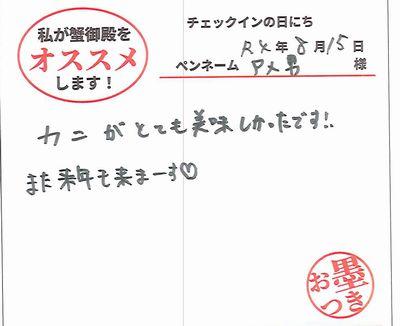 私が蟹御殿を
オススメ
します!
チェックインの日にち
R4年8月15日
ペンネーム アメ男 様
カニがとても美味しかったです!!
また来年も来まーす♡
お墨つき